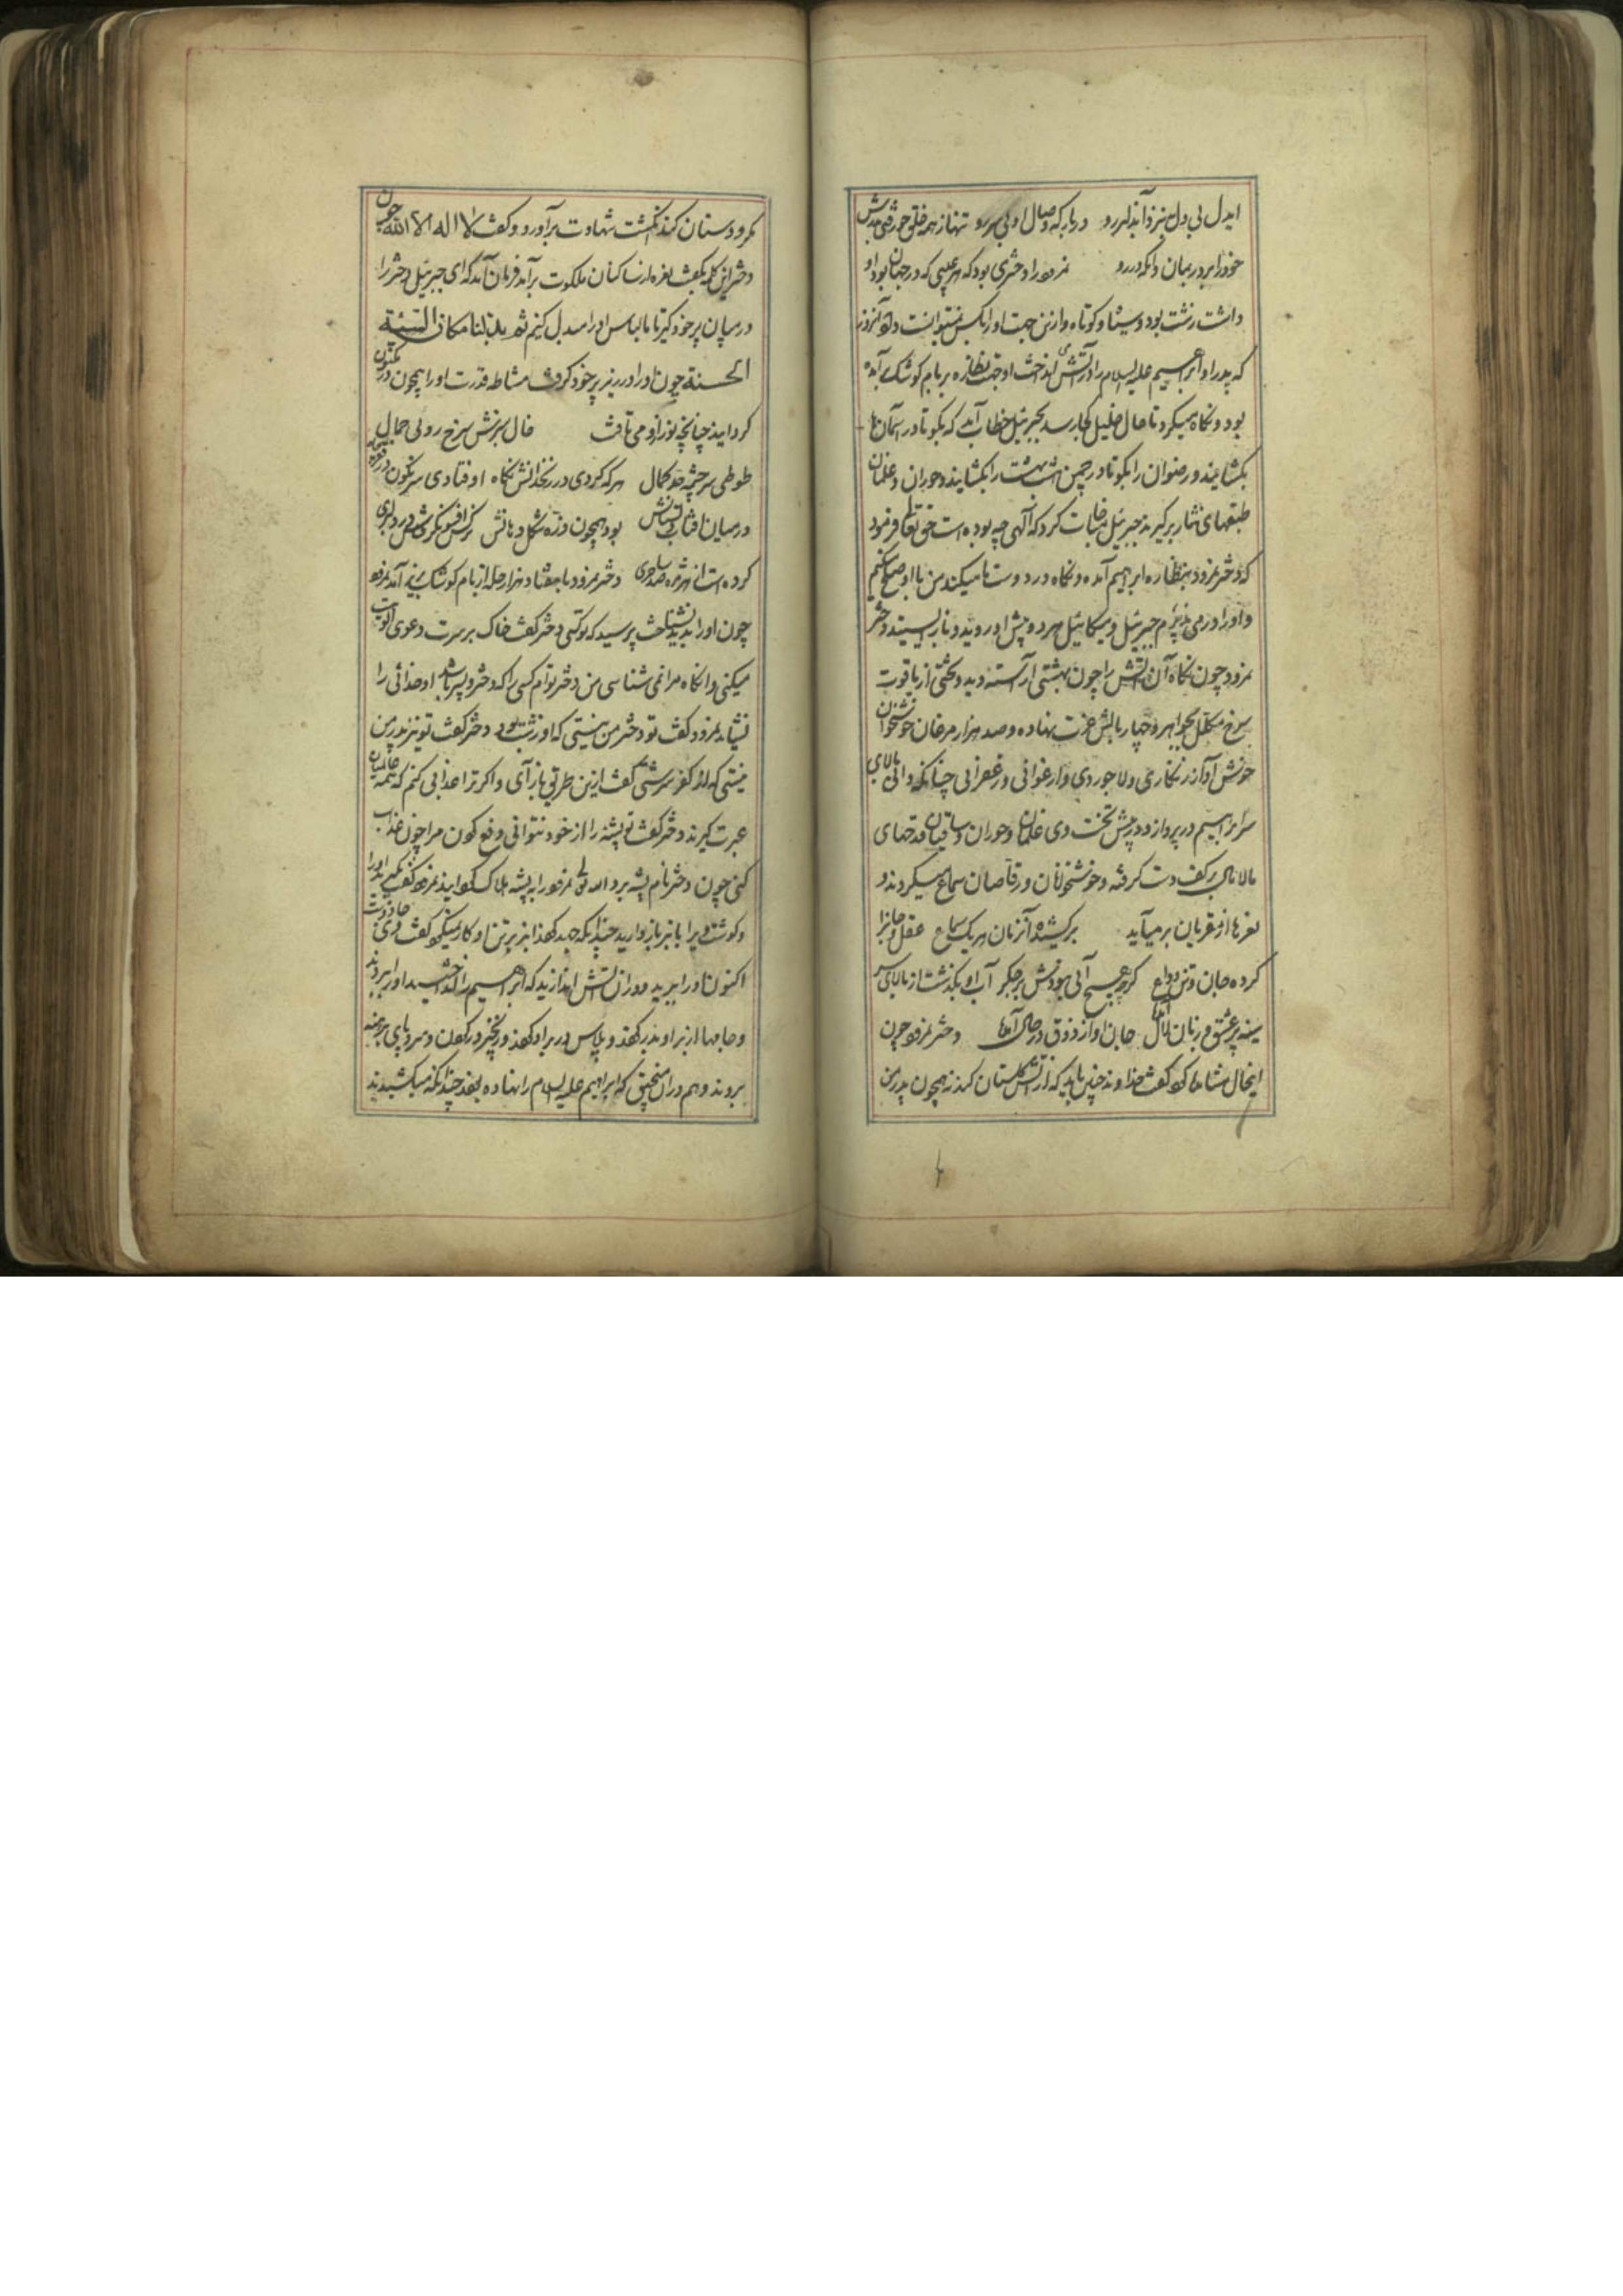 ایدل بی دل نیز
خود را بر در بمان وانکه در رو نمرود را دختری بود که هر عیبی که در جهان بود او
داشت زشت بود و سیاه و کوتاه و ازین جهت او را بکس
که پدر او ابراهیم علیه السلام را در آتش انداخت او جهت نظاره بر بام کوشک بر آمده
بود و نکاه میکرد تا حال خلیل کجا رسد بجبرئیل خطاب آمد که بکو تا در آسمان ها
بکشایند و رضوان را بکو تا در چمن هشت بهشت را بکشایند و حوران و غلمان
طبقهای نثار برکیرند جبرئیل مناجات کرد که الهی چه بوده است حق تعالی فرمود
که دختر نمرود بنظاره ابراهیم آمده و نکاه در دوست ما میکند من با او صلح میکنم
و او را در می پذیرم جبرئیل و میکائیل هر دو پیش او روید و باز ایستید دختر
نمرود چون نکاه آن آتش را چون بهشتی آراسته دید و تختی از یاقوت
سرخ مکلل بجواهر و چهار بالش عزت نهاده و صد هزار مرغان خوشخوان
خوش آواز زنکاری و لاجوردی و ارغوانی و زعفرانی چنانکه دانی بالای
سر ابراهیم در پرواز و در پیش تخت وی غلمان و حوران و ساقیان قدحهای
مالامال بر کف دست کرفته و خوشخوانان و رقاصان سماع میکردند و
نعرها از مقربان برمیآید برکشیده آنزمان هر یک سماع عقل و جانرا
کرده جان و تن وداع کرچه هیچ آبی نبودش بر جکر آب او بکذشت از بالای سر
سینه پر عشق و زبان لال آمده جان او از ذوق در حال آمده دختر نمرود چون
اینحال مشاهده کرد کفت خداوند چنین باید که از آتش کلستان کند نه همچون پدر من
مکر و دستان کند انکشت شهادت برآورد و کفت لا اله الا الله چون
دختر این کلمه بکفت نعره از ساکنان ملکوت برآمد فرمان آمد که ای جبرئیل دختر را
در میان پر خود کیر تا ما لباس او را مبدل کنیم ثم بدلنا مکان السیئة
الحسنة چون او را در زیر پر خود کرفت مشاطه قدرت او را همچون در مکنون
کردانید چنانچه نور ازو می تافت خال سبزش بر رخ روئی جمال
طوطی سرچشمه حد کمال هر که کردی در زنخدانش نکاه اوفتادی سرنکون در قعر چاه
در میان آفتاب بود همچون ذره شکل دهانش نرکس افسونکرش در دلبری
کرده است از هر مژه صد ساحری دختر نمرود با هفتاد هزار حله از بام کوشک بزیر آمد نمرود
چون او را بدید نشناخت پرسید که تو کئی دختر کفت خاک بر سرت دعوی الوهیت
میکنی و انکاه مرا نمی شناسی من دختر توام کسی را که دختر و پسر باشد او خدائی را
نشاید نمرود کفت تو دختر من نیستی که او زشت بود دختر کفت تو نیز پدر من
نیستی که از کفر سرشتی کفت ازین طریق باز آی و اکر نه ترا عذابی کنم که همه عالمیان
عبرت کیرند دختر کفت تو پشه را از خود نتوانی دفع کردن مرا چون عذاب
کنی چون دختر نام پشه برد الله تعالی نمرود را به پشه هلاک کردانید نمرود کفت بکیرید او را
و کوشت ویرا بانبر باز دارید چندانکه جهد کردند انبر بر تن او کار نمیکرد کفت وی جادوست
اکنون او را ببرید و در آن آتش اندازید که ابراهیم را انداختید او را ببردند
و جامها از بر او بدر کردند و پلاس در بر او کردند و زنجیر در کردن و سر و پای برهنه
بردند و هم در آن منجنیق که ابراهیم علیه السلام را نهاده بودند چندانکه میکشیدند